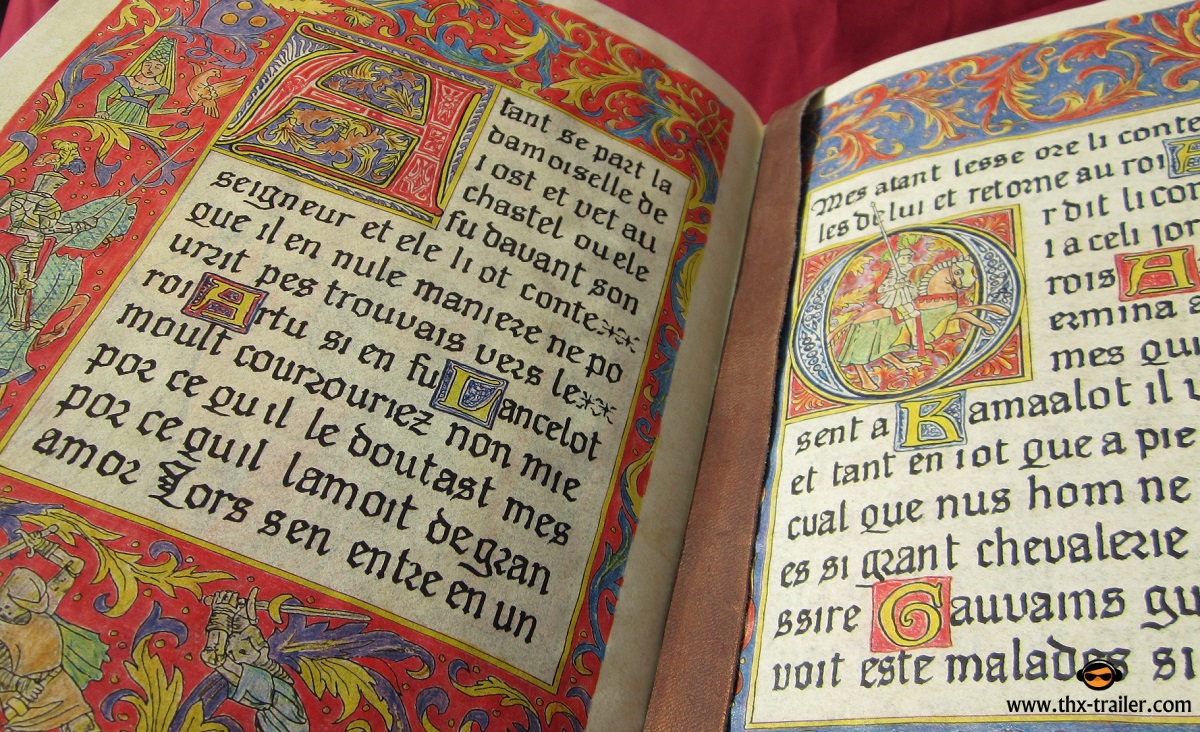 Atant se part la
damoiselle de
l ost et vet au
chastel ou ele
fu davant son
seigneur et ele li ot conte
que il en nule maniere ne po
urrit pes trouvais vers le
roi Artu si en fu Lancelot
moult courrouriez non mie
por ce qu il le doutast mes
por ce quil lamoit de gran
amor Lors sen entre en un
mes atant lesse ore li conte
les de lui et retorne au roi
Or dit li con
i a celi jor
rois A
ermina a
mes qu
sent a Kamaalot il
et tant en i ot que a pie
cual que nus hom ne
es si grant chevalerie
ssire Gauvains qu
voit este malades si
www.thx-trailer.com